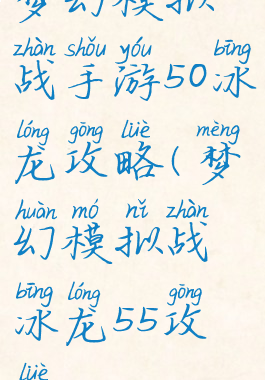 梦幻模拟
zhàn shǒu yóu bīng
战手游50冰
lóng gōng lüè mèng
龙攻略(梦
huàn mó nǐ zhàn
幻模拟战
bīng lóng gōng
冰龙55攻
lüè